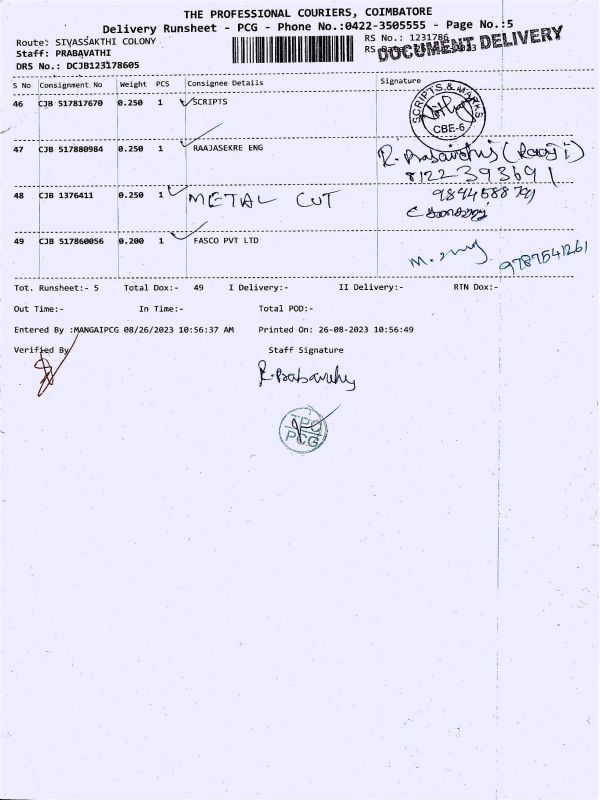 THE PROFESSIONAL COURIERS, COIMBATORE
Delivery Runsheet - PCG - Phone No.:0422-3505555 - Page No.:5
Route: SIVASSAKTHI COLONY
RS No.: 1231786
Staff: PRABAVATHI
DOCUMENT DELIVERY
DRS No.: DCJB123178605
S No Consignment No Weight PCS Consignee Details Signature
46 CJB 517817670 0.250 1 SCRIPTS
SCRIPTS & MARKS
CBE-6
47 CJB 517880984 0.250 1 RAAJASEKRE ENG
8122393691
48 CJB 1376411 0.250 1 METAL CUT
49 CJB 517860056 0.200 1 FASCO PVT LTD
9787541261
Tot. Runsheet:- 5 Total Dox:- 49 I Delivery:- II Delivery:- RTN Dox:-
Out Time:- In Time:- Total POD:-
Entered By :MANGAIPCG 08/26/2023 10:56:37 AM Printed On: 26-08-2023 10:56:49
Verified By Staff Signature
TPC
PCG